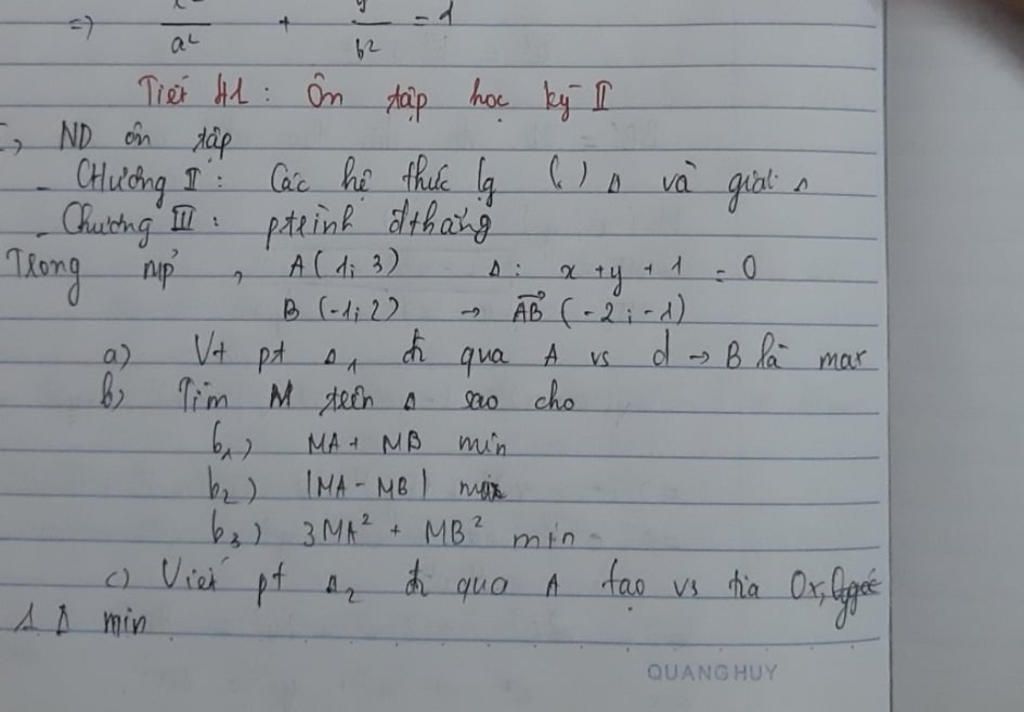 => x²/a² + y²/b² = 1
Tiết 41: Ôn tập học kỳ II
I, ND ôn tập
- Chương II: Các hệ thức lg (.) Δ và giải Δ
- Chương III: ptrình đthẳng
Trong mp', A(1; 3) Δ: x + y + 1 = 0
B(-1; 2) → AB (-2; -1)
a) Vt pt Δ₁ đi qua A vs d → B là max
b) Tìm M trên Δ sao cho
b₁) MA + MB min
b₂) |MA - MB| max
b₃) 3MA² + MB² min
c) Viết pt Δ₂ đi qua A tạo vs tia Ox,
1 Δ min
QUANG HUY